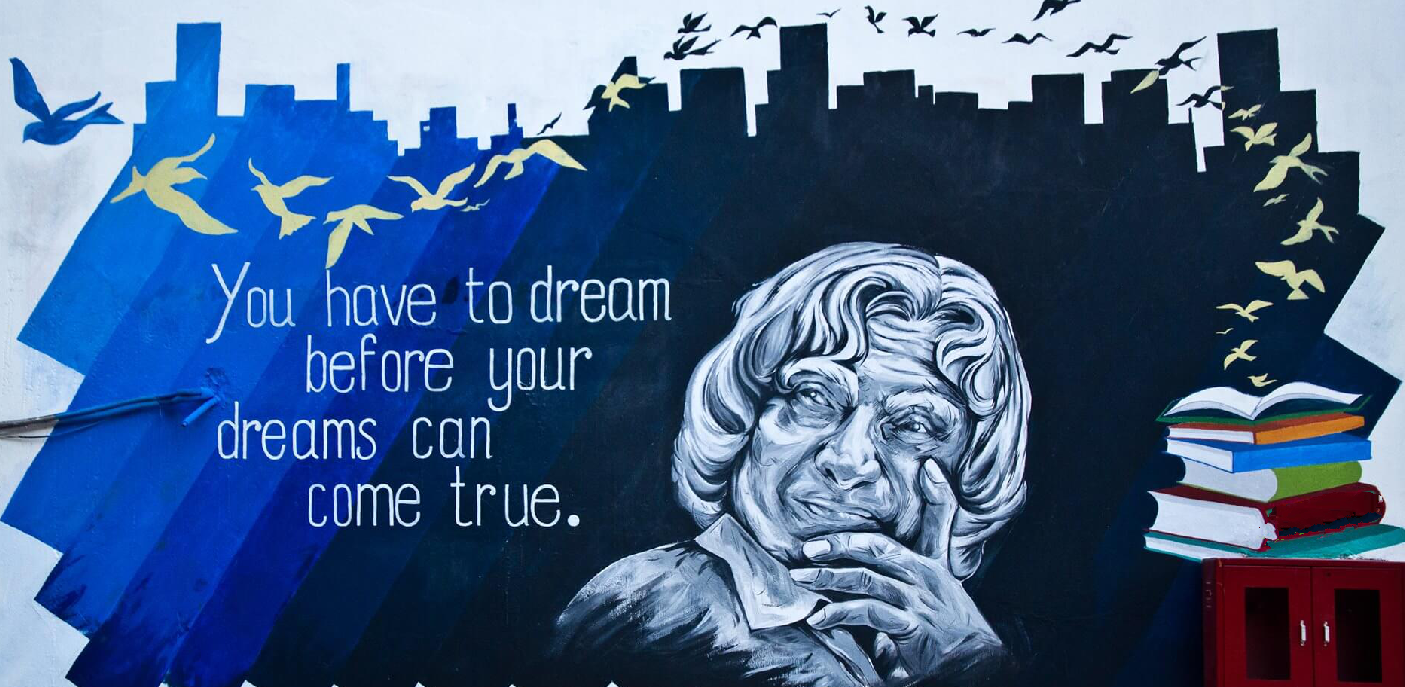 You have to dream
before your
dreams can
come true.